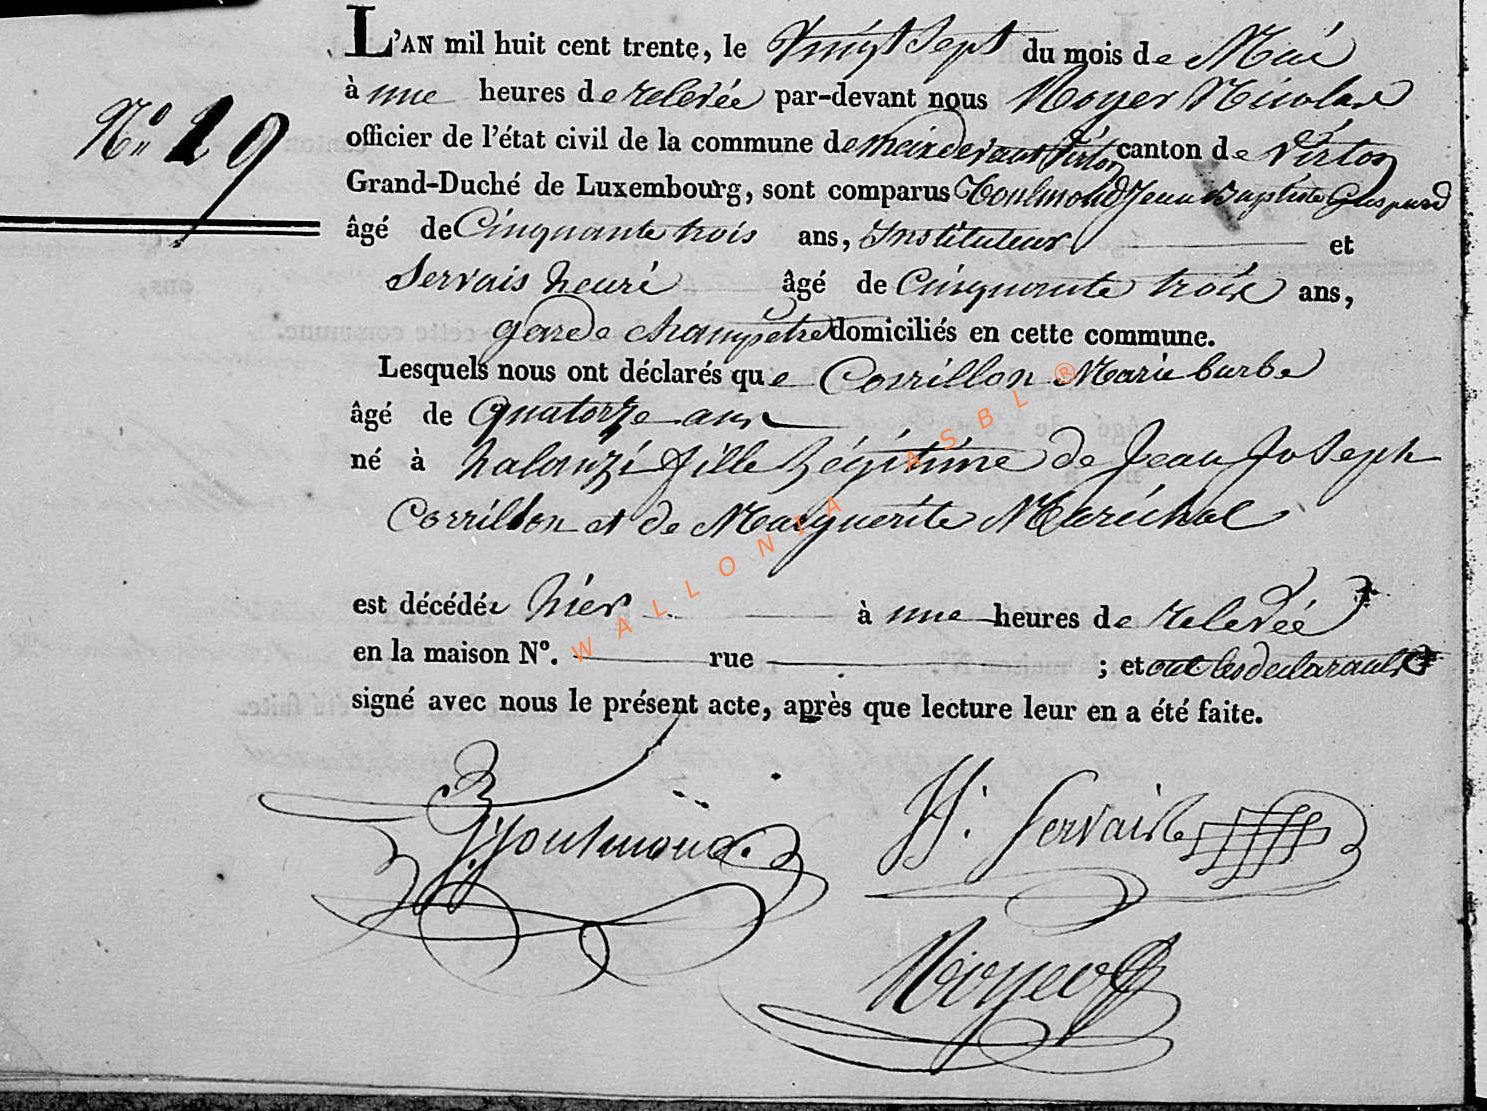 L'AN mil huit cent trente, le Vingt Sept du mois de Mai
à une heures de relevée par-devant nous Noyer Nicolas
N° 29
officier de l'état civil de la commune de meix devant Virton canton de Virton
Grand-Duché de Luxembourg, sont comparus Jean Baptiste Gaspard
âgé de Cinquante trois ans, Instituteur et
Servais henri âgé de Cinquante trois ans,
garde champêtre domiciliés en cette commune.
Lesquels nous ont déclarés que Corrillon Marie barbe
âgé de quatorze ans
né à fille légitime de Jean Joseph
Corrillon et de Marguerite Maréchal
est décédée hier à une heures de relevée
en la maison N°. rue ; et ont les déclarants
signé avec nous le présent acte, après que lecture leur en a été faite.
H. Servais
Noyer
WALLONIA ASBL ®